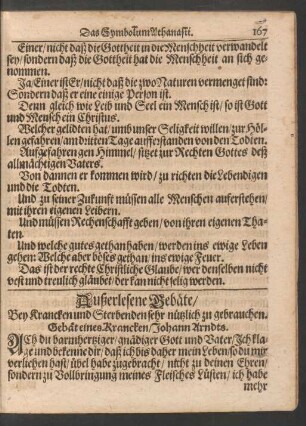 Das Symbolum Athanasii. 167
Einer / nicht daß die Gottheit in die Menschheit verwandelt
sey / sondern daß die Gottheit hat die Menschheit an sich ge-
nommen.
Ja / Einer ist Er / nicht daß die zwo Naturen vermenget sind:
Sondern daß er eine einige Person ist.
Denn gleich wie Leib und Seel ein Mensch ist / so ist Gott
und Mensch ein Christus.
Welcher gelidten hat / umb unser Seligkeit willen / zur Höl-
len gefahren / am dritten Tage aufferstanden von den Todten.
Auffgefahren gen Himmel / sitzet zur Rechten Gottes deß
allmächtigen Vaters.
Von dannen er kommen wird / zu richten die Lebendigen
und die Todten.
Und zu seiner Zukunft müssen alle Menschen auferstehen /
mit ihren eigenen Leibern.
Und müssen Rechenschafft geben / von ihren eigenen Tha-
ten.
Und welche gutes gethan haben / werden ins ewige Leben
gehen: Welche aber böses gethan / ins ewige Feuer.
Das ist der rechte Christliche Glaube / wer denselben nicht
vest und treulich gläubet / der kan nicht selig werden.
Außerlesene Gebäte /
Bey Krancken und Sterbenden sehr nützlich zu gebrauchen.
Gebät eines Krancken / Johann Arndts.
ACh du barmhertziger / gnädiger Gott und Vater / Ich kla-
ge und bekenne dir / daß ich bis daher mein Leben / so du mir
verliehen hast / übel habe zugebracht / nicht zu deinen Ehren /
sondern zu Vollbringung meines Fleisches Lüsten / ich habe
mehr